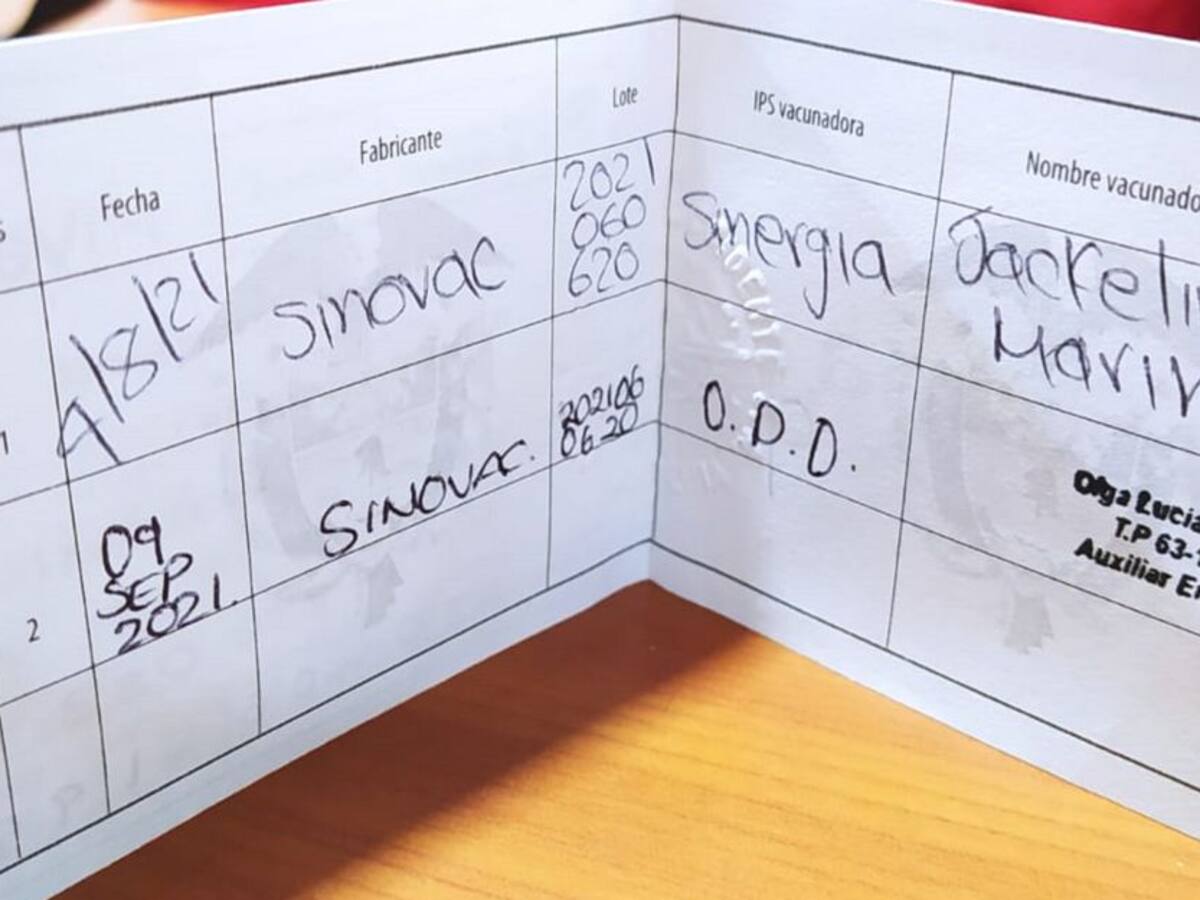 Fecha Fabricante Lote IPS vacunadora Nombre vacunado
1 4/8/21 Sinovac 2021 Sinergia Jackeli
060 Marin
620
2 09 SINOVAC. 202106 O.D.D. Olga Lucia
SEP 0620 T.P 63-1
2021. Auxiliar En